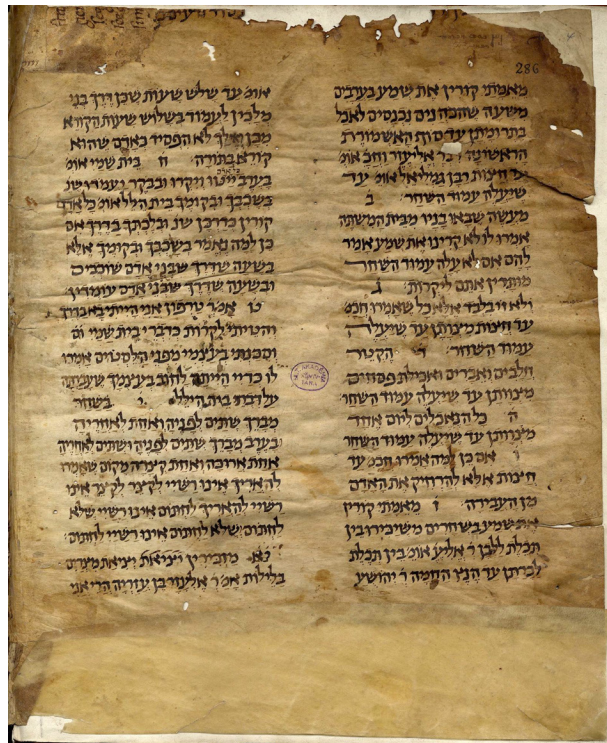 286
מאמתי קורין את שמע בערבים
משעה שהכהנים נכנסים לאכל
בתרומתן עד סוף האשמורת
הראשונה דבר אליעזר וחכ אומ
עד חצות רבן גמליאל אומ עד
שיעלה עמוד השחר ב
מעשה שבאו בניו מבית המשתה
אמרו לו לא קרינו את שמע אמר
להם אם לא עלה עמוד השחר
מותרין אתם ליקרות ג
ולא זו בלבד אלא כל שאמרו חכמ
עד חצות מצותן עד שיעלה
עמוד השחר ד הקטר
חלבים ואברים ואכילת פסחים
מצותן עד שיעלה עמוד השחר
ה כל הנאכלים ליום אחד
מצותן עד שיעלה עמוד השחר
אם כן למה אמרו חכמ עד
חצות אלא להרחיק את האדם
מן העבירה ו מאמתי קורין
את שמע בשחרים משיכירו בין
תכלת ללבן ר אליע אומ בין תכלת
לכרתן עד הנץ החמה ר יהושע
אומ עד שלש שעות שכן דרך בני
מלכין לעמוד בשלוש שעות הקורא
מכן ואילך לא הפסיד כאדם שהוא
קורא בתורה ח בית שמי אומ
בערב ייטו ויקרו ובבקר ועמדו שנ
בשכבך ובקומך בית הלל אומ כל אדם
קורין כדרכן שנ ובלכתך בדרך אם
כן למה נאמר בשכבך ובקומך אלא
בשעה שדרך שבני אדם שוכבים
ובשעה שדרך שבני אדם עומדין
ט אמר טרפון אני הייתי בא בדרך
והטיתי לקרות כדברי בית שמי
וסכנתי בעצמי מפני הלסטים אמרו
לו כדיי הייתה לחוב בעצמך שעברתה
על דברי בית הילל י בשחר
מברך שתים לפניה ואחת לאחריה
ובערב מברך שתים לפניה ושתים לאחריה
אחת ארוכה ואחת קצרה מקום שאמרו
להאריך אינו רשיי לקצר לקצר אינו
רשיי להאריך לחתום אינו רשיי שלא
לחתום שלא לחתום אינו רשיי לחתום
יא מזכירין יציאת מצרים
בלילות אמ ר אלעזר בן עזריה הרי אני